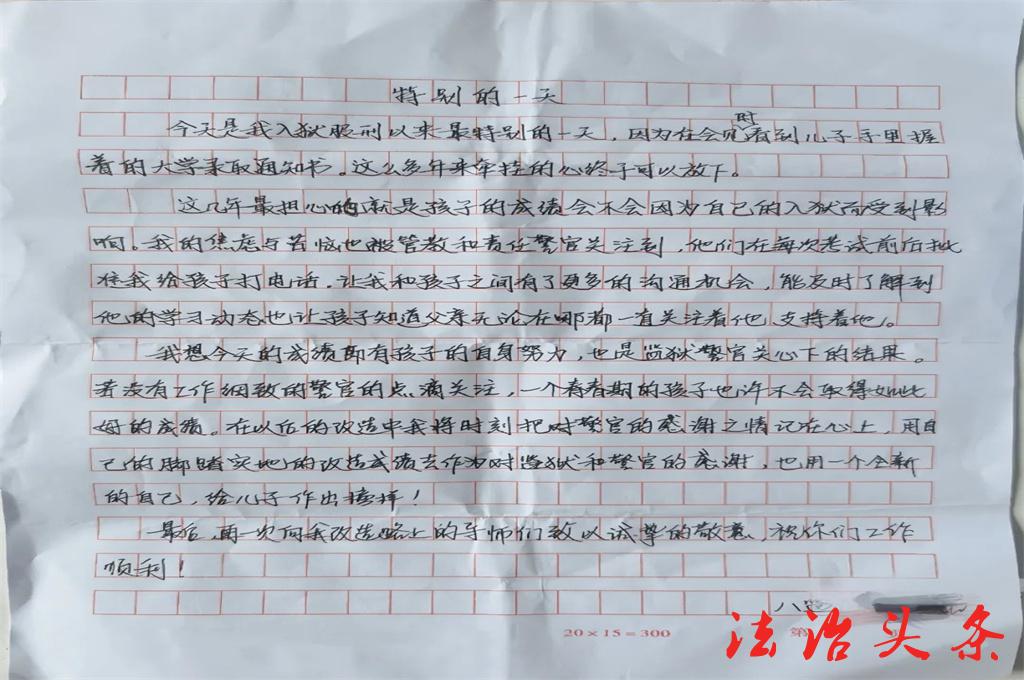 特别的一天
今天是我入狱服刑以来最特别的一天，因为在会见时看到儿子手里握
着的大学录取通知书。这么多年来牵挂的心终于可以放下。
这几年最担心的就是孩子的成绩会不会因为自己的入狱而受到影
响。我的焦虑与苦恼也被管教和责任警官关注到，他们在每次考试前后批
准我给孩子打电话，让我和孩子之间有了更多的沟通机会，能及时了解到
他的学习动态也让孩子知道父亲无论在哪都一直关注着他，支持着他。
我想今天的成绩即有孩子的自身努力，也是监狱警官关心下的结果。
若没有工作细致的警官的点滴关注，一个青春期的孩子也许不会取得如此
好的成绩。在以后的改造中我将时刻把对警官的感谢之情记在心上，用自
己的脚踏实地的改造成绩去作为对监狱和警官的感谢，也用一个全新
的自己，给儿子作出榜样！
最后，再一次向我改造路上的导师们致以诚挚的敬意，祝你们工作
顺利！
八监
20×15=300
第
法治头条